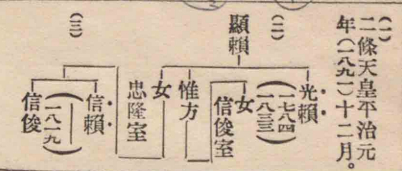 (一)
二條天皇平治元
年(一八九一)十二月。
(二)
顯賴
光賴
(一七八四
一八三三)
女
信俊室
惟方
女
忠隆室
(三)
信賴
(一八一九)
信俊